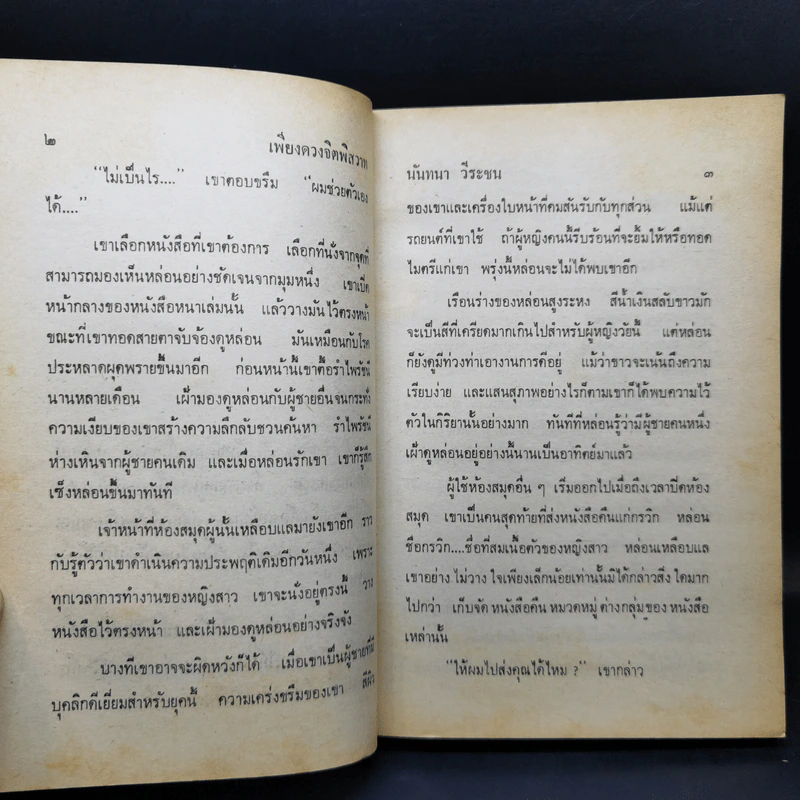 ๒
เพียงดวงจิตพิสวาท
"ไม่เป็นไร...." เขาตอบขรึม "ผมช่วยตัวเอง
ได้...."
เขาเลือกหนังสือที่เขาต้องการ เลือกที่นั่งจากจุดที่
สามารถมองเห็นหล่อนอย่างชัดเจนจากมุมหนึ่ง เขาเปิด
หน้ากลางของหนังสือหนาเล่มนั้น แล้ววางมันไว้ตรงหน้า
ขณะที่เขาทอดสายตาจับจ้องดูหล่อน มันเหมือนกับโรค
ประหลาดผุดพรายขึ้นมาอีก ก่อนหน้านี้เขาตื้อรำไพรัชนี
นานหลายเดือน เฝ้ามองดูหล่อนกับผู้ชายอื่นจนกระทั่ง
ความเงียบของเขาสร้างความลึกลับชวนค้นหา รำไพรัชนี
ห่างเหินจากผู้ชายคนเดิม และเมื่อหล่อนรักเขา เขาก็รู้สึก
เซ็งหล่อนขึ้นมาทันที
เจ้าหน้าที่ห้องสมุดผู้นั้นเหลือบแลมายังเขาอีก ราว
กับรู้ตัวว่าเขาดำเนินความประพฤติเดิมอีกวันหนึ่ง เพราะ
ทุกเวลาการทำงานของหญิงสาว เขาจะนั่งอยู่ตรงนี้ วาง
หนังสือไว้ตรงหน้า และเฝ้ามองดูหล่อนอย่างจริงจัง
บางทีเขาอาจจะผิดหวังก็ได้ เมื่อเขาเป็นผู้ชายที่มี
บุคลิกดีเยี่ยมสำหรับยุคนี้ ความเคร่งขรึมของเขา สีผิว
นันทนา วีระชน
๓
ของเขาและเครื่องใบหน้าที่คมสันรับกับทุกส่วน แม้แต่
รถยนต์ที่เขาใช้ ถ้าผู้หญิงคนนี้รีบร้อนที่จะยิ้มให้หรือทอด
ไมตรีแก่เขา พรุ่งนี้หล่อนจะไม่ได้พบเขาอีก
เรือนร่างของหล่อนสูงระหง สีน้ำเงินสลับขาวมัก
จะเป็นสีที่เครียดมากเกินไปสำหรับผู้หญิงวัยนี้ แต่หล่อน
ก็ยังดูมีท่วงท่าเอางานการดีอยู่ แม้ว่าขาวจะเน้นถึงความ
เรียบง่าย และแสนสุภาพอย่างไรก็ตามเขาก็ได้พบความไว้
ตัวในกิริยานั้นอย่างมาก ทันทีที่หล่อนรู้ว่ามีผู้ชายคนหนึ่ง
เฝ้าดูหล่อนอยู่อย่างนี้นานเป็นอาทิตย์มาแล้ว
ผู้ใช้ห้องสมุดอื่น ๆ เริ่มออกไปเมื่อถึงเวลาปิดห้อง
สมุด เขาเป็นคนสุดท้ายที่ส่งหนังสือคืนแก่กรวิก หล่อน
ชื่อกรวิก....ชื่อที่สมเนื้อตัวของหญิงสาว หล่อนเหลือบแล
เขาอย่าง ไม่วาง ใจเพียงเล็กน้อยเท่านั้นมิได้กล่าวสิ่ง ใดมาก
ไปกว่า เก็บจัด หนังสือคืน หมวดหมู่ ต่างกลุ่มของ หนังสือ
เหล่านั้น
"ให้ผมไปส่งคุณได้ไหม ?" เขากล่าว